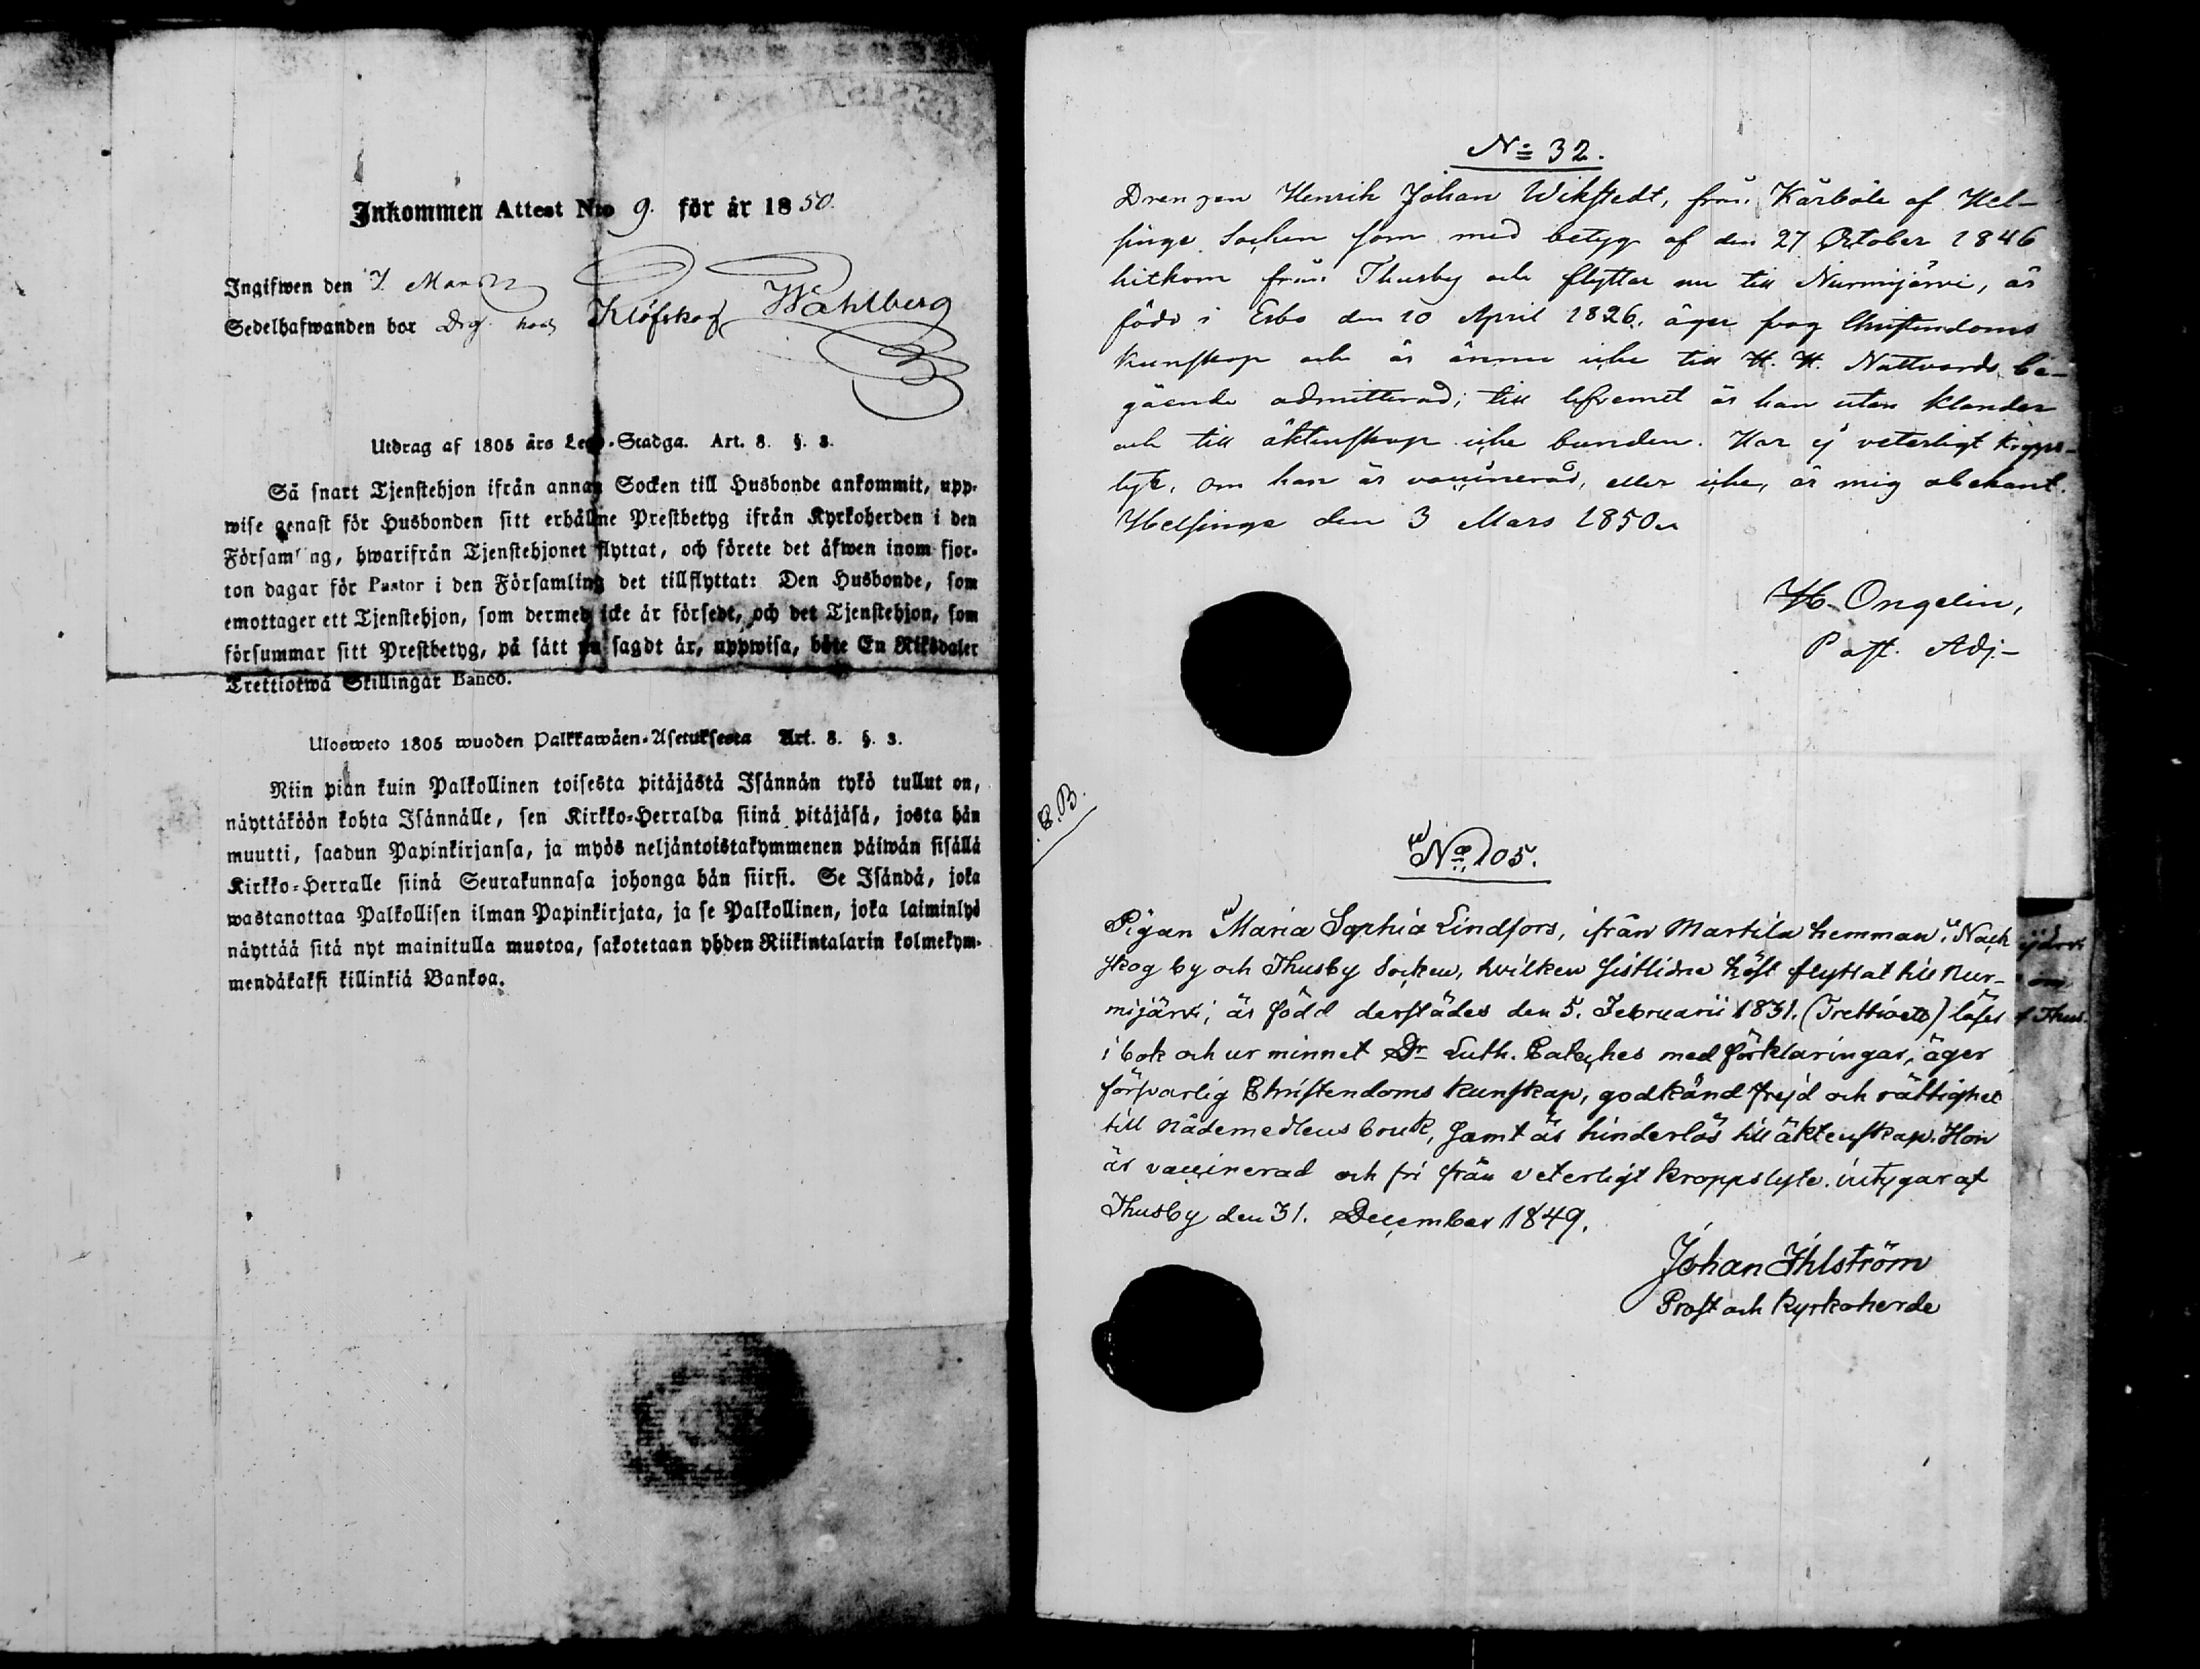 Inkommen Attest Nro 9. för år 1850.
Ingifwen den 7. Martii
Sedelhafwanden bor Drg. hos Klöfskog Wahlberg
Utdrag af 1805 års Lego-Stadga. Art. 8. §. 3.
Så snart Tjenstehjon ifrån annan Socken till Husbonde ankommit, upp-
wise genast för Husbonden sitt erhållne Prestbetyg ifrån Kyrkoherden i den
Församling, hwarifrån Tjenstehjonet flyttat, och förete det äfwen inom fjor-
ton dagar för Pastor i den Församling det tillflyttat: Den Husbonde, som
emottager ett Tjenstehjon, som dermed icke är försedt, och det Tjenstehjon, som
försummar sitt Prestbetyg, på sätt nu sagdt är, uppwisa, böte En Riksdaler
Trettiotwå Skillingar Banco.
Ulosweto 1805 wuoden Palkkawäen-Asetuksesta Art. 8. §. 3.
Niin pian kuin Palkollinen toisesta pitäjästä Isännän tykö tullut on,
näyttäköön kohta Isännälle, sen Kirkko-Herralda siinä pitäjäsä, josta hän
muutti, saadun Papinkirjansa, ja myös neljäntoistakymmenen päiwän sisällä
Kirkko-Herralle siinä Seurakunnasa johonga hän siirsi. Se Isändä, joka
wastanottaa Palkollisen ilman Papinkirjata, ja se Palkollinen, joka laiminlyö
näyttää sitä nyt mainitulla muotoa, sakotetaan yhden Riikintalarin kolmekym-
mendäkaksi killinkiä Bankoa.
No 32.
Drengen Henrik Johan Wikstedt, från Kårböle af Hel-
singe Socken som med betyg af den 27 October 1846
hitkom från Thusby och flyttar nu till Nurmijärvi, är
född i Esbo den 10 April 1826, äger svag Christendoms
kunskap och är ännu icke till H. H. Nattvards be-
gående admitterad; till lefvernet är han utan klander
och till äktenskap icke bunden. Har ej veterligt kropps-
lyte, om han är vaccinerad, eller icke, är mig obekant.
Helsinge den 3 Mars 1850.
H. Ongelin,
Past. Adj.
C.B.
No 105.
Pigan Maria Sophia Lindfors, ifrån Martila hemman i Nack
skog by och Thusby Socken, hvilken sistlidne höst flyttat till Nur-
mijärvi, är född derstädes den 5. Februarii 1831. (Trettioett) läser
i bok och ur minnet Dr Luth. Cateches med förklaringar, äger
försvarlig Christendoms kunskap, godkänd frejd och rättighet
till Nådemedlens bruk, samt är hinderlös till äktenskap. Hon
är vaccinerad och fri från veterligt kroppslyte. intygar af
Thusby den 31. December 1849.
Johan Ihlström
Prost och Kyrkoherde
ijärvi
om
f Thus-